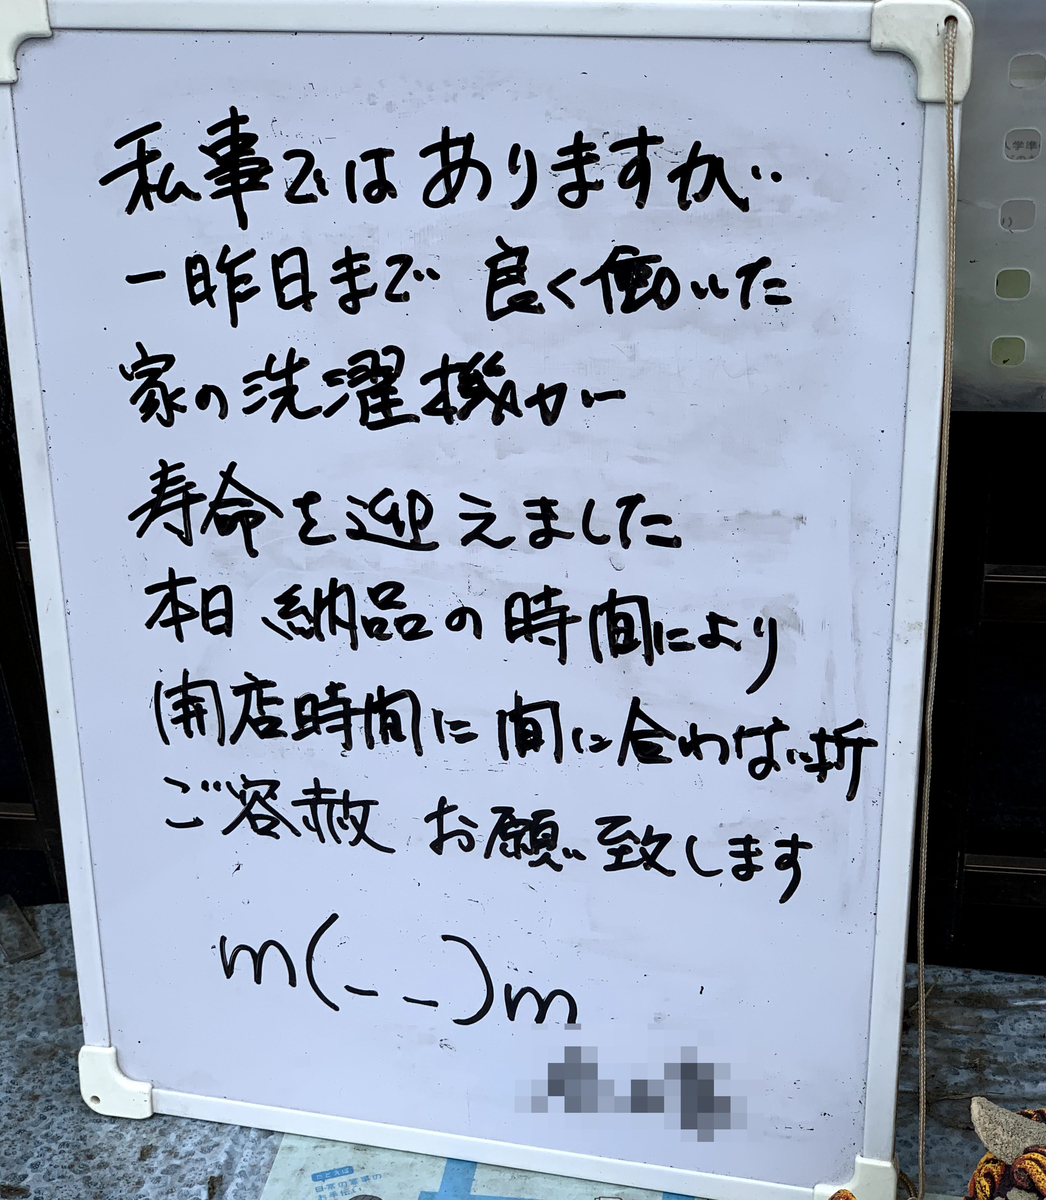 私事ではありますが..
一昨日まで 良く働いた
家の洗濯機が
寿命を迎えました
本日 納品の時間により
開店時間に間に合わない折
ご容赦 お願い致します
m(_ _)m
日常の家事の
お手伝い